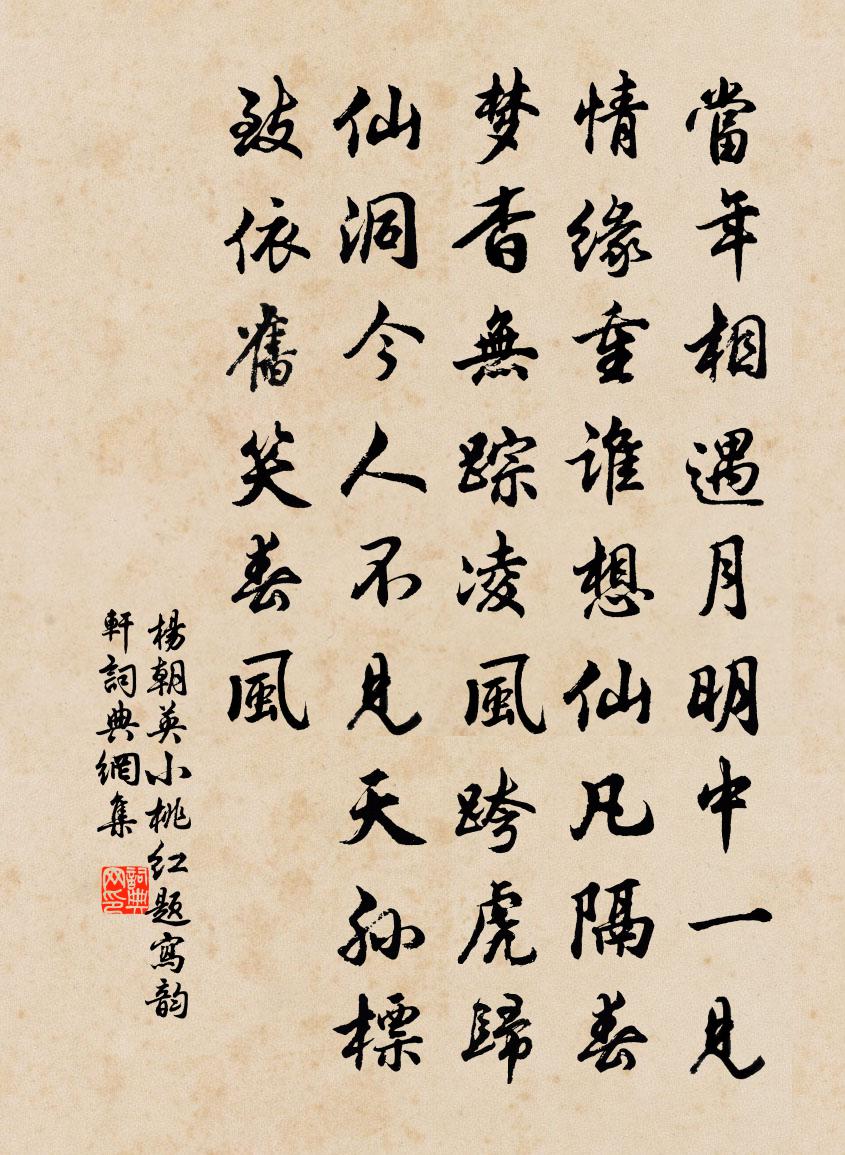 當年相遇月明中一見
情緣重誰想仙凡隔春
梦杳無踪凌風跨虎歸
仙洞今人不見天孙標
致依舊笑春風
楊朝英小桃红题寫韵
軒詞典網集
詞典网印